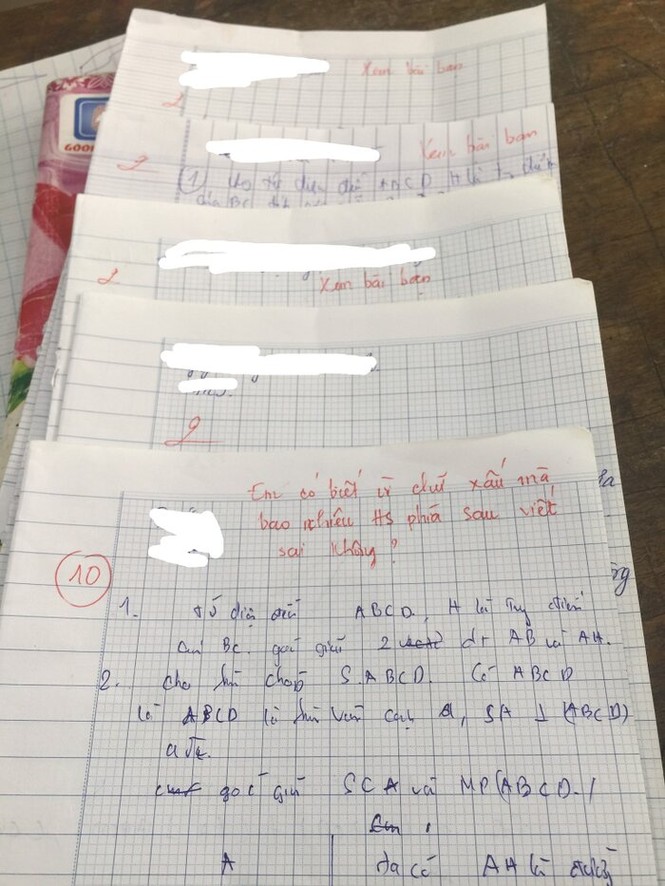 Xem bài bạn
2
GOO
Xem bài bạn
2
1 Cho tứ diện đều ABCD, H là
của BC
Xem bài bạn
2
2
Em có biết vì chữ xấu mà
bao nhiêu HS phía sau viết
sai không?
10
1. tứ diện đều ABCD, H là trung điểm
của BC. góc giữa 2 đt AB và AH.
2. cho hình chóp S.ABCD. Có ABCD
là ABCD là hình vuông cạnh a, SA ⊥ (ABCD)
a√2.
góc giữa SCA và MP(ABCD.)
A
ta có AH là